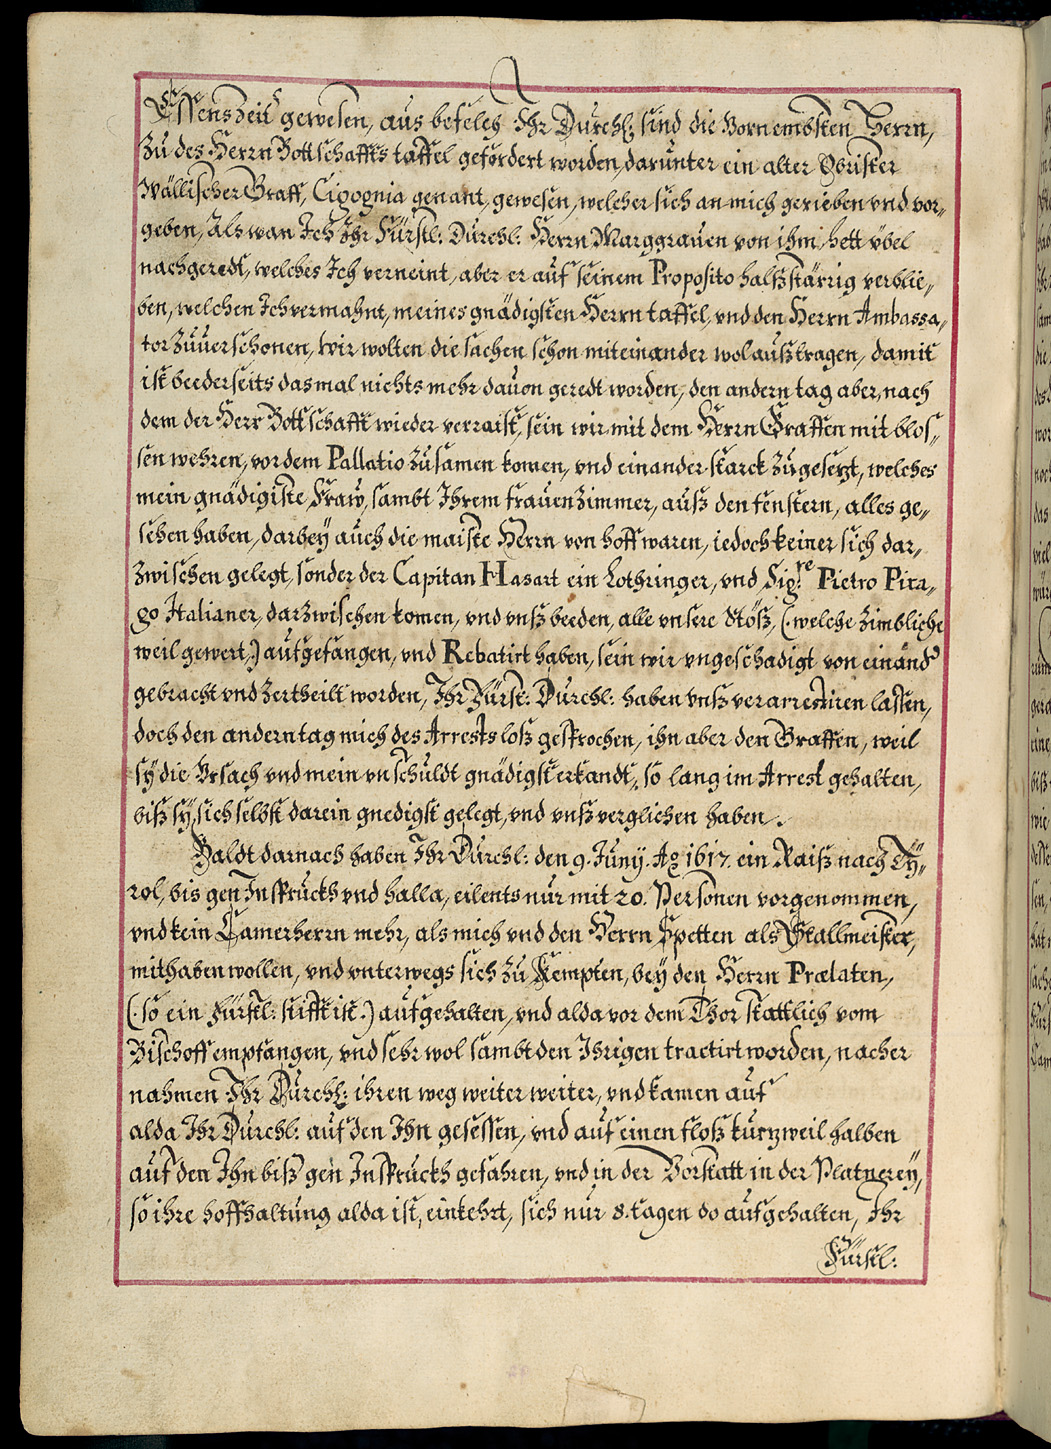 Essenszeit gewesen, aus befelch Ihr Durchl: sind die Vornembsten Herrn,
zu des Herrn Bottschaffts taffel gefordert worden, darunter ein alter Obrister
Wällischer Graff, Cigognia genant, gewesen, welcher sich an mich gerieben vnd vor„
geben, Als wan Ich Ihr Fürstl: Durchl: Herrn Marggrauen von ihm, hett vbel
nachgeredt, welches Ich verneint, aber er auf seinem Proposito halßstärrig verblie„
ben, welchen Ich vermahnt, meines gnädigsten Herrn taffel, vnd den Herrn Ambassa„
tor zuuerschonen, wir wolten die sachen schon miteinander wol außtragen, damit
ist beederseits dasmal nichts mehr dauon geredt worden, den andern tag aber, nach
dem der Herr Bottschafft wieder verraist, sein wir mit dem Herrn Graffen mit blos„
sen wehren, vor dem Pallatio zusamen komen, vnd einander starck zugesezt, welches
mein gnädigiste Fraw, sambt Ihrem frauenzimmer, auß den fenstern, alles ge„
sehen haben, darbey auch die maiste Herrn von hoff waren, iedoch keiner sich dar„
zwischen gelegt, sonder der Capitan Hasart ein Lothringer, vnd Sig:re Pietro Pira„
go Italianer, darzwischen komen, vnd vnß beeden, alle vnsere Stöß, (: welche zimbliche
weil gewert,) aufgefangen, vnd Rebatirt haben, sein wir vngeschadigt von einand
gebracht vnd zertheilt worden, Ihr Fürst: Durchl: haben vnß verarrestiren lassen,
doch den andern tag mich des Arrests loß gesprochen, ihn aber den Graffen, weil
sy die Vrsach vnd mein vnschuldt gnädigst erkandt, so lang im Arrest gehalten,
biß sy sich selbst darein gnedigst gelegt, vnd vnß verglichen haben.
Baldt darnach haben Ihr Durchl: den 9. Juny. Ao 1617. ein Raiß nach Ty„
rol, bis gen Insprückh vnd halla, eilents nur mit 20. Personen vorgenommen,
vnd kein Camerherrn mehr, als mich vnd den Herrn Spetten als Stallmeister,
mithaben wollen, vnd vnterwegs sich zu Kempten, bey den Herrn Prælaten,
(: so ein Fürstl: stifft ist.) aufgehalten, vnd alda vor dem Thor stattlich vom
Bischoff empfangen, vnd sehr wol sambt den Ihrigen tractirt worden, nacher
nahmen Ihr Durchl: ihren weg weiter weiter, vnd kamen auf
alda Ihr Durchl: auf den Ihn gesessen, vnd auf einen floß kurzweil halben
auf den Ihn biß gen Insprückh gefahren, vnd in der Vorstatt in der Platnerey,
so ihre hoffhaltung alda ist, einkehrt, sich nur 8. tagen do aufgehalten, Ihr
Fürstl: